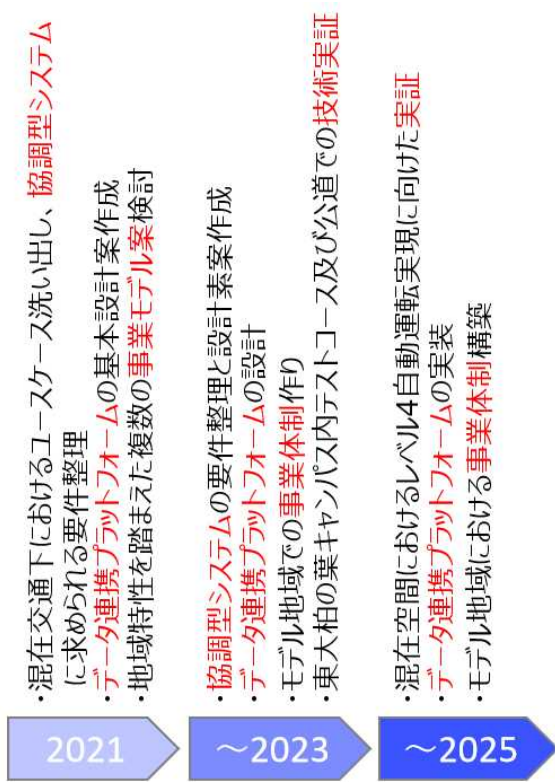 2021
・混在交通下におけるユースケース洗い出し、協調型システム
に求められる要件整理
・データ連携プラットフォームの基本設計案作成
・地域特性を踏まえた複数の事業モデル案検討
～2023
・協調型システムの要件整理と設計素案作成
・データ連携プラットフォームの設計
・モデル地域での事業体制作り
・東大柏の葉キャンパス内テストコース及び公道での技術実証
～2025
・混在空間におけるレベル4自動運転実現に向けた実証
・データ連携プラットフォームの実装
・モデル地域における事業体制構築